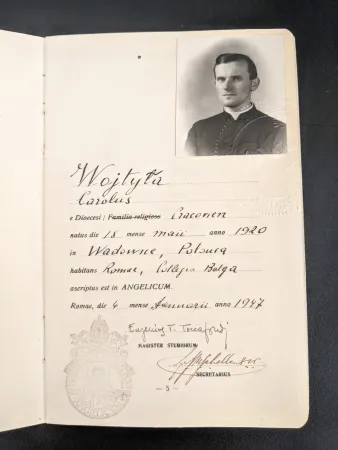 Wojtyła
Carolus
e Dioecesi / Familia religiosa Cracovien
natus die 18 mense maii anno 1920
in Wadowice, Polonia
habitans Romae, Collegio Belga
ascriptus est in ANGELICUM.
Romae, die 4 Januarii anno 1947
MAGISTER STUDIORUM
SECRETARIUS
— 5 —